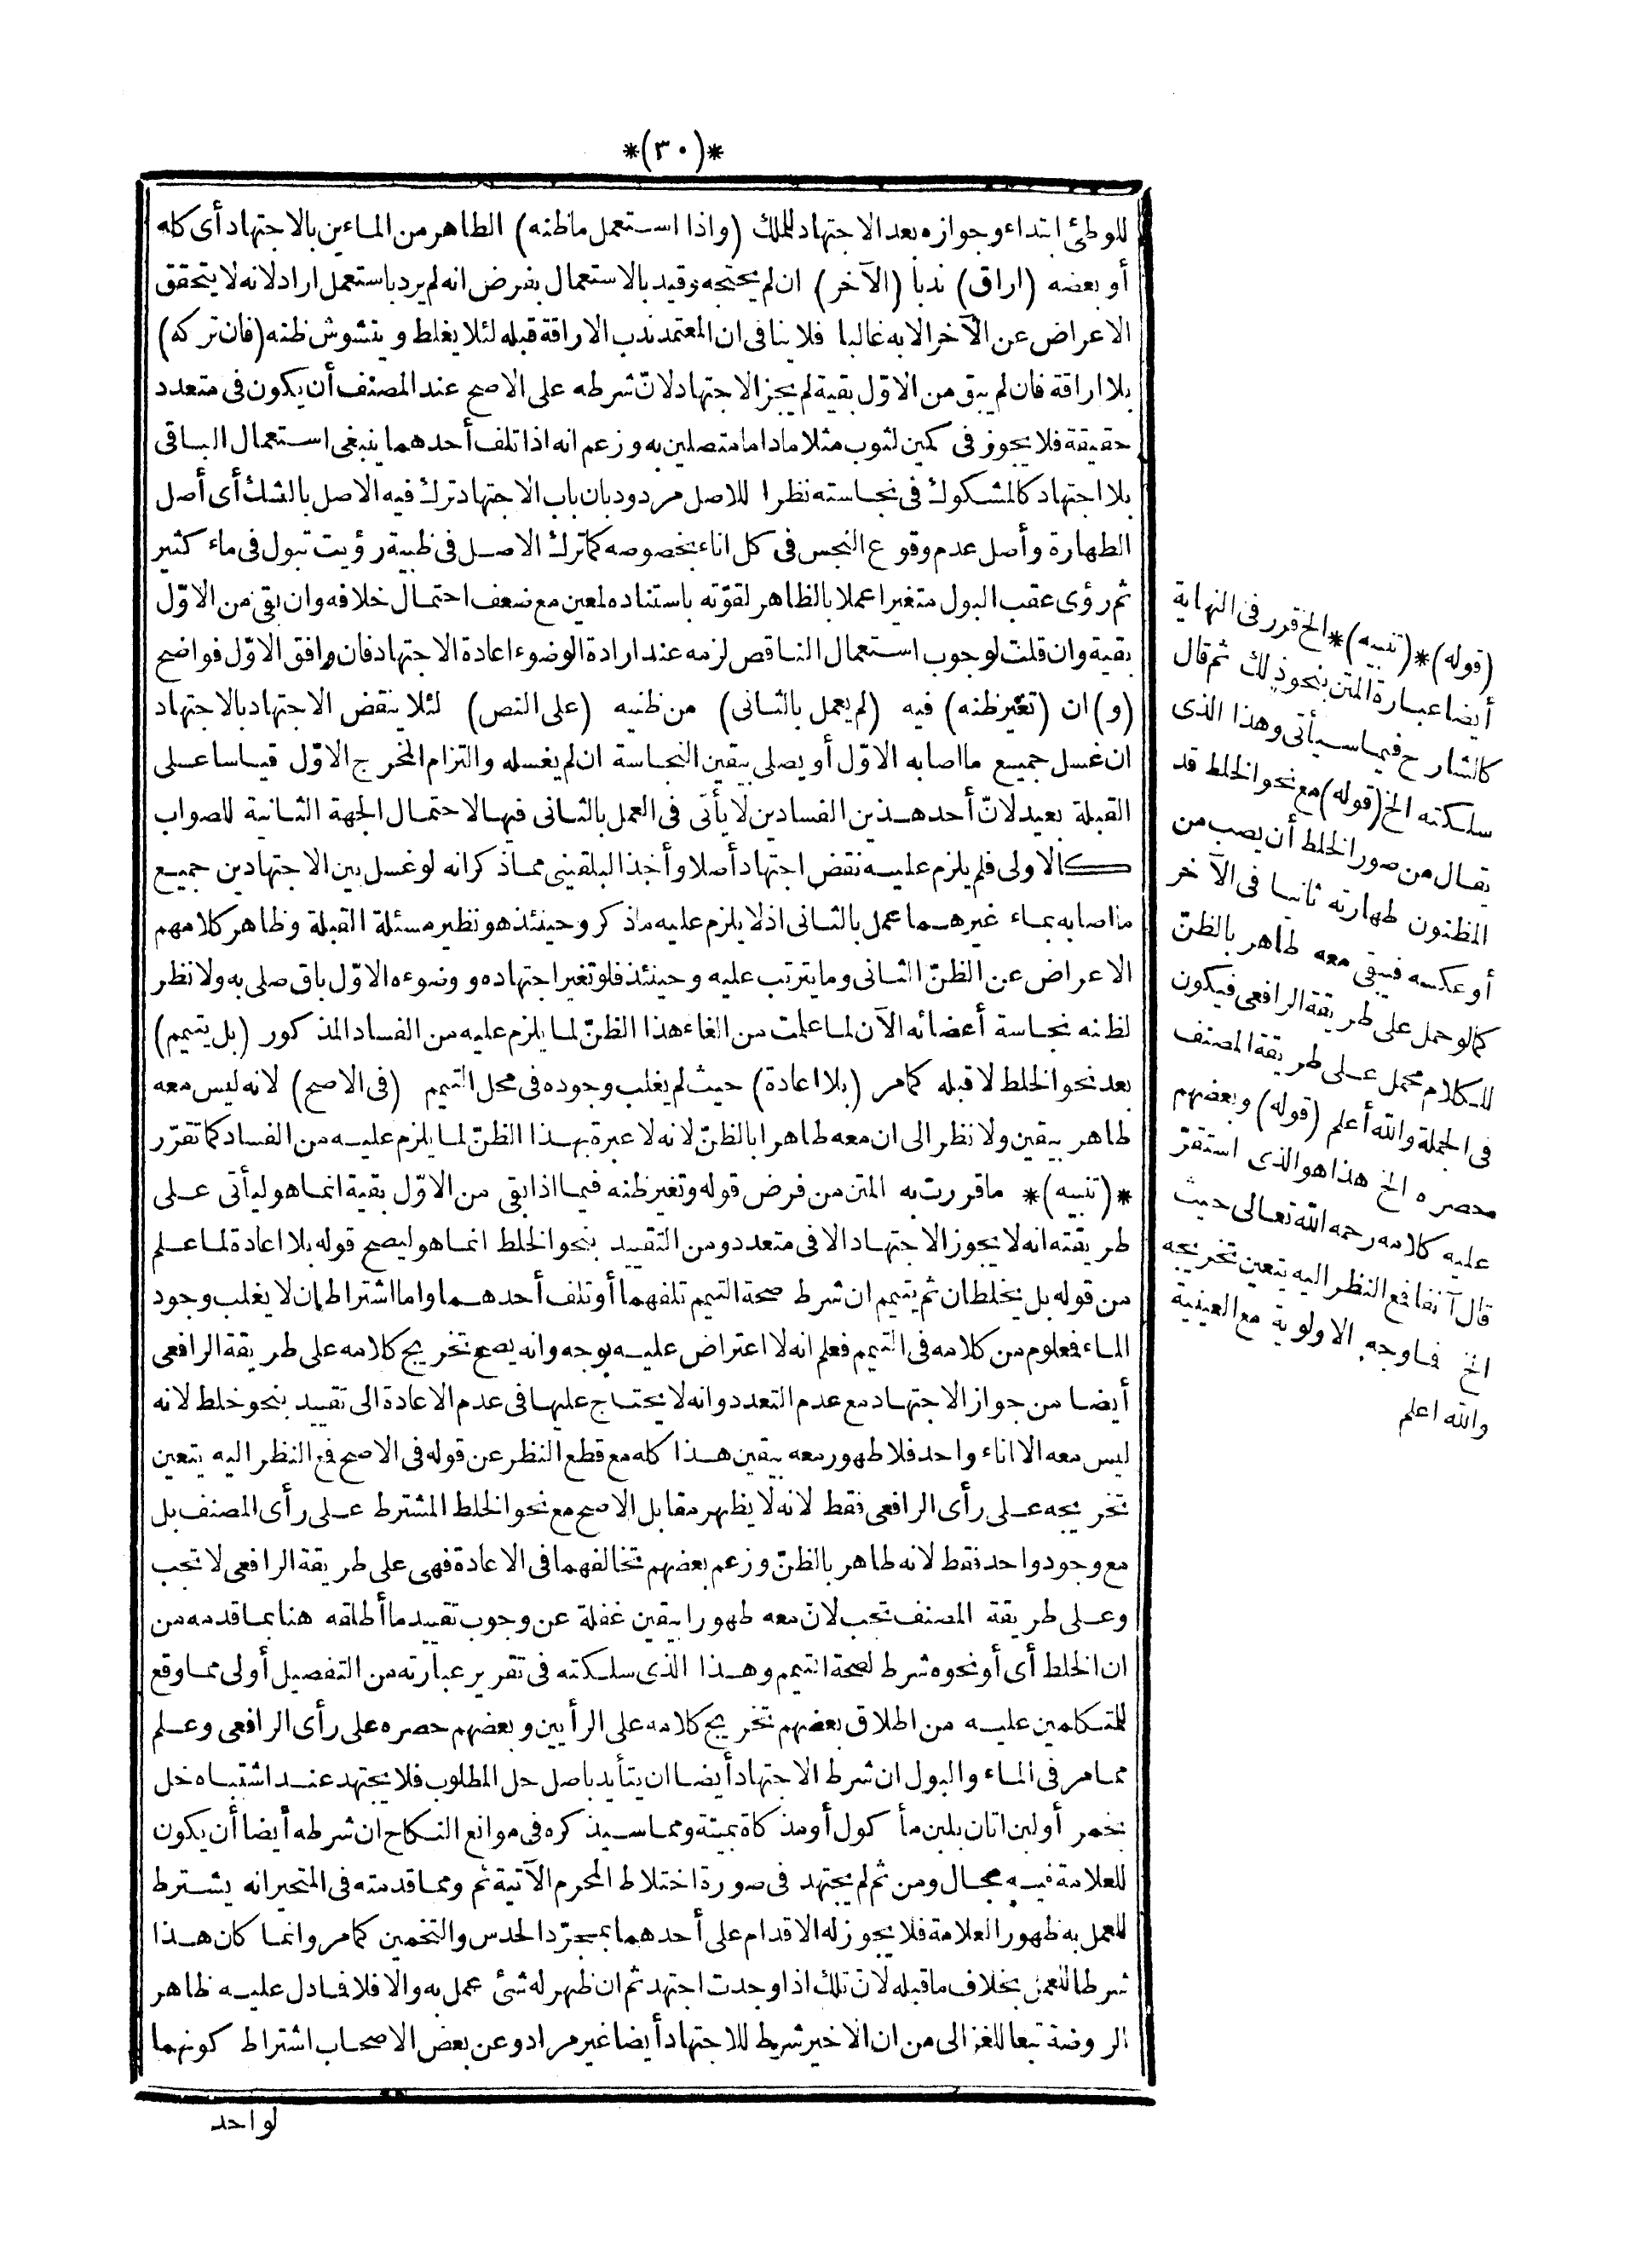 *(٣٠)*
للوطئ ابتداء وجوازه بعد الاجتهاد للملك (واذا استعمل ماظنه) الطاهر من الماءين بالاجتهاد أى كله
أو بعضه (اراق) ندبا (الآخر) ان لم يحتجه وقيد بالاستعمال بفرض انه لم يرد باستعمل اراد لانه لا يتحقق
الاعراض عن الآخر الا به غالبا فلا ينافى ان المعتمد ندب الاراقة قبله لئلا يغلط ويتشوش ظنه (فان تركه)
بلا اراقة فان لم يبق من الاوّل بقية لم يجز الاجتهاد لانّ شرطه على الاصح عند المصنف أن يكون فى متعدد
حقيقة فلا يجوز فى كمين لثوب مثلا ماداما متصلين به وزعم انه اذا تلف أحدهما ينبغى استعمال الباقى
بلا اجتهاد كالمشكوك فى نجاسته نظرا للاصل مردود بان باب الاجتهاد ترك فيه الاصل بالشك أى أصل
الطهارة وأصل عدم وقوع النجس فى كل اناء بخصوصه كما ترك الاصل فى ظبية رؤيت تبول فى ماء كثير
ثم رؤى عقب البول متغيرا عملا بالظاهر لقوّته باستناده لمعين مع ضعف احتمال خلافه وان بقى من الاوّل
بقية وان قلت لوجوب استعمال الناقص لزمه عند ارادة الوضوء اعادة الاجتهاد فان وافق الاوّل فواضح
(و) ان (تغير ظنه) فيه (لم يعمل بالثانى) من ظنيه (على النص) لئلا ينقض الاجتهاد بالاجتهاد
ان غسل جميع ما اصابه الاوّل أو يصلى بيقين النجاسة ان لم يغسله والتزام المخرج الاوّل قياسا على
القبلة بعيد لانّ أحد هذين الفسادين لا يأتى فى العمل بالثانى فيها لاحتمال الجهة الثانية للصواب
كالاولى فلم يلزم عليه نقض اجتهاد أصلا وأخذ البلقينى مما ذكر انه لو غسل بين الاجتهادين جميع
ما اصابه بماء غيرهما عمل بالثانى اذ لا يلزم عليه ماذكر وحينئذ هو نظير مسئلة القبلة وظاهر كلامهم
الاعراض عن الظنّ الثانى وما يترتب عليه وحينئذ فلو تغير اجتهاده ووضوءه الاوّل باق صلى به ولا نظر
لظنه نجاسة أعضائه الآن لما علمت من الغاء هذا الظنّ لما يلزم عليه من الفساد المذكور (بل يتيمم)
بعد نحو الخلط لا قبله كما مر (بلا اعادة) حيث لم يغلب وجوده فى محل التيمم (فى الاصح) لانه ليس معه
طاهر بيقين ولا نظر الى ان معه طاهرا بالظنّ لانه لا عبرة بهذا الظنّ لما يلزم عليه من الفساد كما تقرّر
*(تنبيه)* ما قررت به المتن من فرض قوله وتغير ظنه فيما اذا بقى من الاوّل بقية انما هو ليأتى على
طريقته انه لا يجوز الاجتهاد الا فى متعدد ومن التقييد بنحو الخلط انما هو ليصح قوله بلا اعادة لما علم
من قوله بل يخلطان ثم يتيمم ان شرط صحة التيمم تلفهما أو تلف أحدهما واما اشتراط ان لا يغلب وجود
الماء فمعلوم من كلامه فى التيمم فعلم انه لا اعتراض عليه بوجه وانه يصح تخريج كلامه على طريقة الرافعى
أيضا من جواز الاجتهاد مع عدم التعدد وانه لا يحتاج عليها فى عدم الاعادة الى تقييد بنحو خلط لانه
ليس معه الا اناء واحد فلا طهور معه بيقين هذا كله مع قطع النظر عن قوله فى الاصح فمع النظر اليه يتعين
تخريجه على رأى الرافعى فقط لانه لا يظهر مقابل الاصح مع نحو الخلط المشترط على رأى المصنف بل
مع وجود واحد فقط لانه طاهر بالظنّ وزعم بعضهم تخالفهما فى الاعادة فهى على طريقة الرافعى لا تجب
وعلى طريقة المصنف تجب لانّ معه طهورا بيقين غفلة عن وجوب تقييد ما أطلقه هنا بما قدمه من
ان الخلط أى أو نحوه شرط لصحة التيمم وهذا الذى سلكته فى تقرير عبارته من التفصيل أولى مما وقع
للمتكلمين عليه من اطلاق بعضهم تخريج كلامه على الرأيين وبعضهم حصره على رأى الرافعى وعلم
مما مر فى الماء والبول ان شرط الاجتهاد أيضا ان يتأيد باصل حل المطلوب فلا يجتهد عند اشتباه خل
بخمر أو لبن اتان بلبن مأكول أو مذكاة بميتة ومما سيذكره فى موانع النكاح ان شرطه أيضا أن يكون
للعلامة فيه مجال ومن ثم لم يجتهد فى صورة اختلاط المحرم الآتية ثم ومما قدمته فى المتحير انه يشترط
للعمل به ظهور العلامة فلا يجوز له الاقدام على أحدهما بمجرّد الحدس والتخمين كما مر وانما كان هذا
شرطا للعمل بخلاف ما قبله لانّ تلك اذا وجدت اجتهد ثم ان ظهر له شئ عمل به والا فلا فما دل عليه ظاهر
الروضة تبعا للغزالى من ان الاخير شرط للاجتهاد أيضا غير مراد وعن بعض الاصحاب اشتراط كونهما
لواحد
(قوله) *(تنبيه)* الخ قرر فى النهاية
أيضا عبارة المتن بنحو ذلك ثم قال
كالشارح فيما سيأتى وهذا الذى
سلكته الخ (قوله) مع نحو الخلط قد
يقال من صور الخلط أن يصب من
المظنون طهارته ثانيا فى الآخر
أو عكسه فيبقى معه طاهر بالظنّ
كما لو حمل على طريقة الرافعى فيكون
للكلام محمل على طريقة المصنف
فى الجملة والله أعلم (قوله) وبعضهم
حصره الخ هذا هو الذى استقرّ
عليه كلامه رحمه الله تعالى حيث
قال آنفا فمع النظر اليه يتعين تخريجه
الخ فما وجه الاولوية مع العينية
والله اعلم